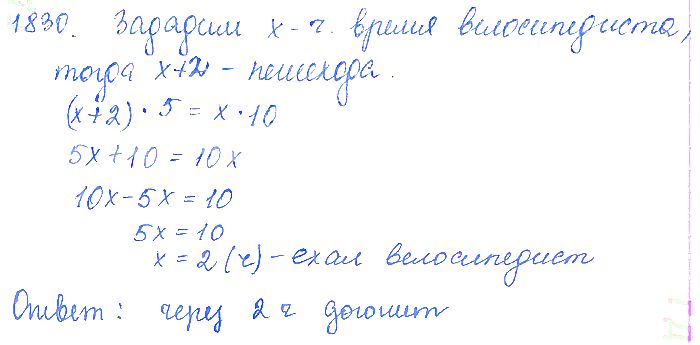 1830. Зададим x - ч. время велосипедиста,
тогда x+2 - пешехода.
(x+2) · 5 = x · 10
5x+10 = 10x
10x-5x = 10
5x = 10
x = 2 (ч) - ехал велосипедист
Ответ: через 2 ч догонит